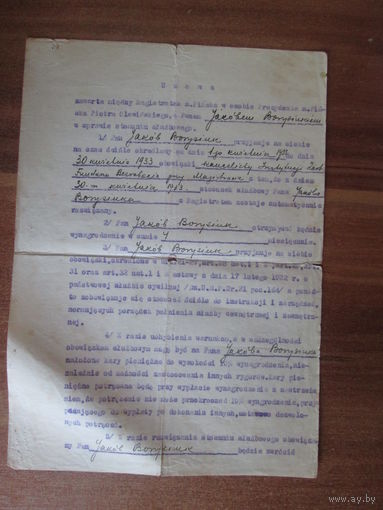 Umowa
zawarta między Magistratem m.Pińska w osobie Prezydenta m.Piń-
ska Piotra Olewińskiego, a Panem Jakóbem Borysiukiem
w sprawie stosunku służbowego.
1/ Pan Jakób Borysiuk przyjmuje na siebie
na czas ściśle określony od dnia 1-go kwietnia 1932 do dnia
30 kwietnia 1933 obowiązki
przy Magistracie z tem, że z dniem
30-m kwietnia 1933 stosunek służbowy Pana Jakóba
Borysiuka z Magistratem zostaje automatycznie
rozwiązany.
2/ Pan Jakób Borysiuk otrzymywać będzie
wynagrodzenie w sumie miesięcznie.
3/ Pan Jakób Borysiuk przyjmuje na siebie
obowiązki, określone w
31 oraz art.32 ust.1 i 2 ustawy z dnia 17 lutego 1922 r. o
państwowej służbie cywilnej /Dz.U.R.P.Nr.21 poz.164/ a ponad-
to zobowiązuje się stosować ściśle do instrukcji i zarządzeń,
normujących porządek pełnienia służby zewnętrznej i wewnętrz-
nej.
4/ W razie uchybienia warunkom, a w szczególności
obowiązkom służbowym mogą być na Pana Jakóba Borysiuka
nałożone kary pieniężne do wysokości 10% wynagrodzenia, nie-
zależnie od możności zastosowania innych rygorów. Kary pie-
niężne potrącane będą przy wypłacie wynagrodzenia z zastrzeże-
niem, że potrącenie nie może przekroczyć 10% wynagrodzenia, przy-
padającego do wypłaty po dokonaniu innych, ustawowo dozwolo-
nych potrąceń.
5/ W razie rozwiązania stosunku służbowego obowiąza-
ny Pan Jakób Borysiuk będzie zwrócić
ay.by